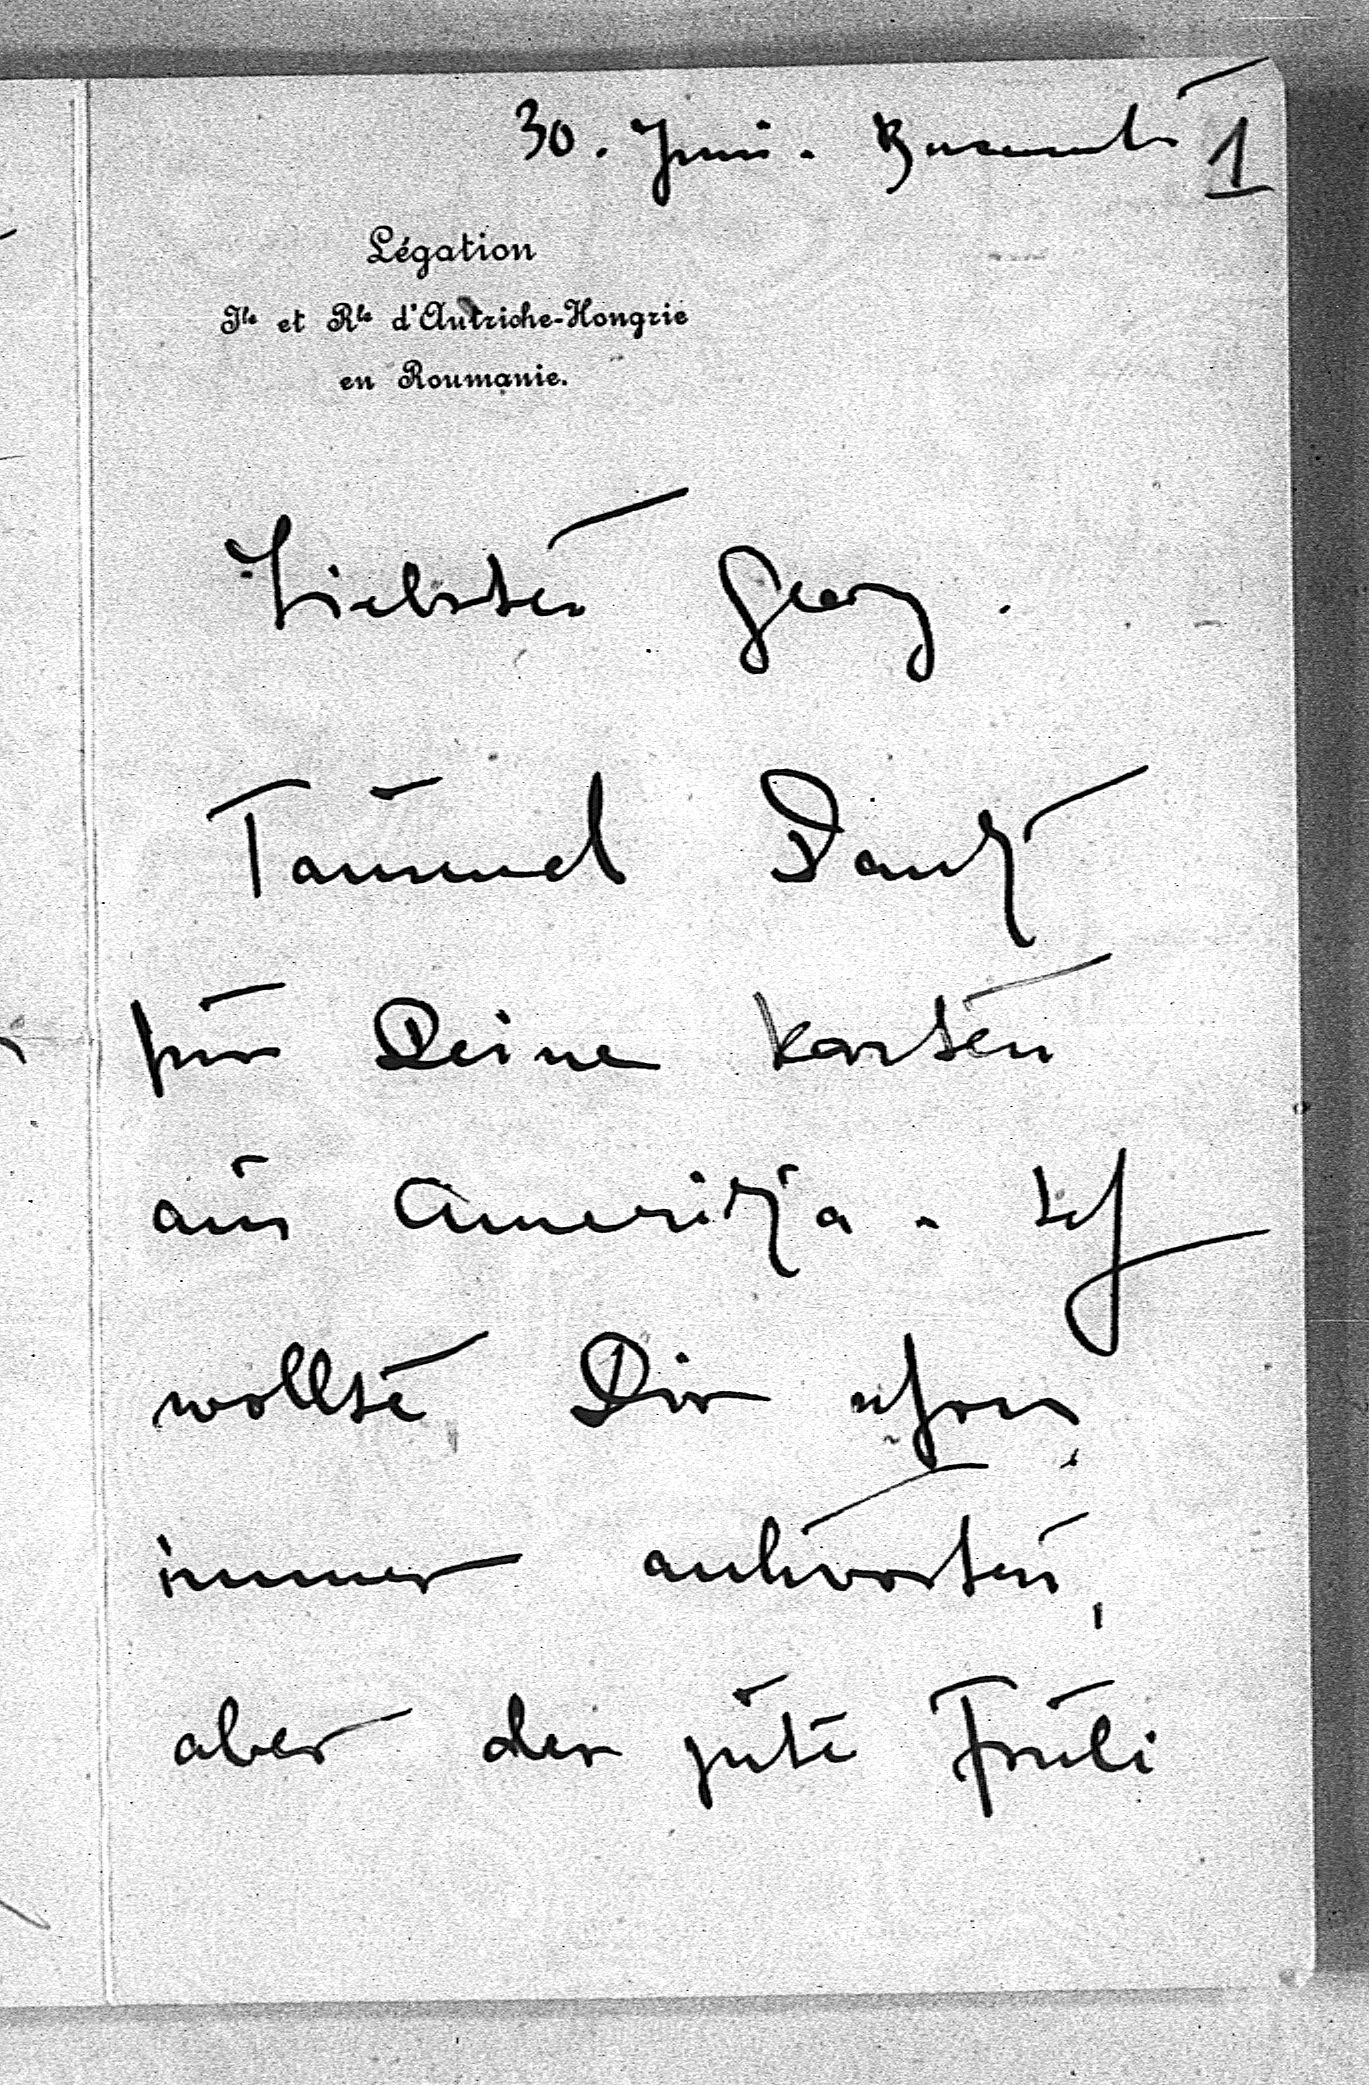 30. Juni. Bukarest 1
Légation
Jle et Rle d'Autriche-Hongrie
en Roumanie.
Liebster Georg.
Tausend Dank
für Deine Karten
aus Amerika. Ich
wollte Dir schon
immer antworten,
aber der gute